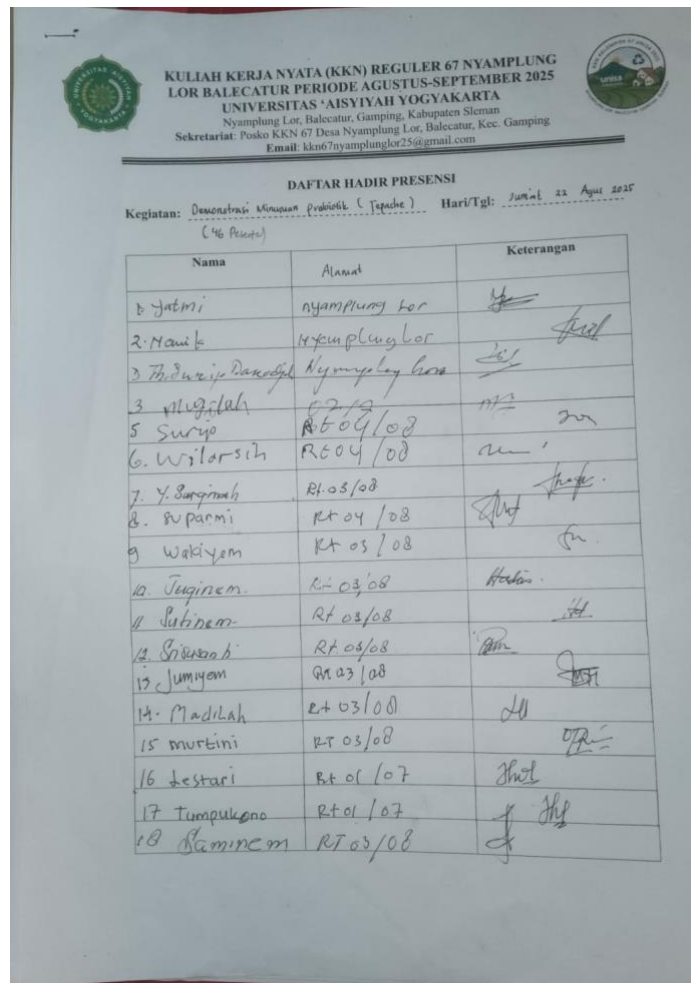 KULIAH KERJA NYATA (KKN) REGULER 67 NYAMPLUNG
LOR BALECATUR PERIODE AGUSTUS-SEPTEMBER 2025
UNIVERSITAS ‘AISYIYAH YOGYAKARTA
Nyamplung Lor, Balecatur, Gamping, Kabupaten Sleman
Sekretariat: Posko KKN 67 Desa Nyamplung Lor, Balecatur, Kec. Gamping
Email: kkn67nyamplunglor25@gmail.com
DAFTAR HADIR PRESENSI
Kegiatan: Demonstrasi Minuman Probiotik ( Tepache ) Hari/Tgl: Jumat 22 Agus 2025
(46 Peserta)
Nama Alamat Keterangan
1. Yatmi nyamplung Lor
2. Manik Nyamplung Lor
3 Nyamplung
3 Mugilah
5 Surip Rt 04/08
6. Wilarsih Rt 04/08
7. Y. Sarginah Rt. 03/08
8. Suparmi Rt 04/08
9 Wakiyem Rt 03/08
10. Tuginem. Rt 03/08
11 Sutinem Rt 03/08
12. Rt 03/08
13 Jumiyem Rt 03/08
14. Madilah Rt 03/08
15 murtini RT 03/08
16 Lestari Rt 01/07
17 Tumpukono Rt 01/07
18 Saminem RT 03/08